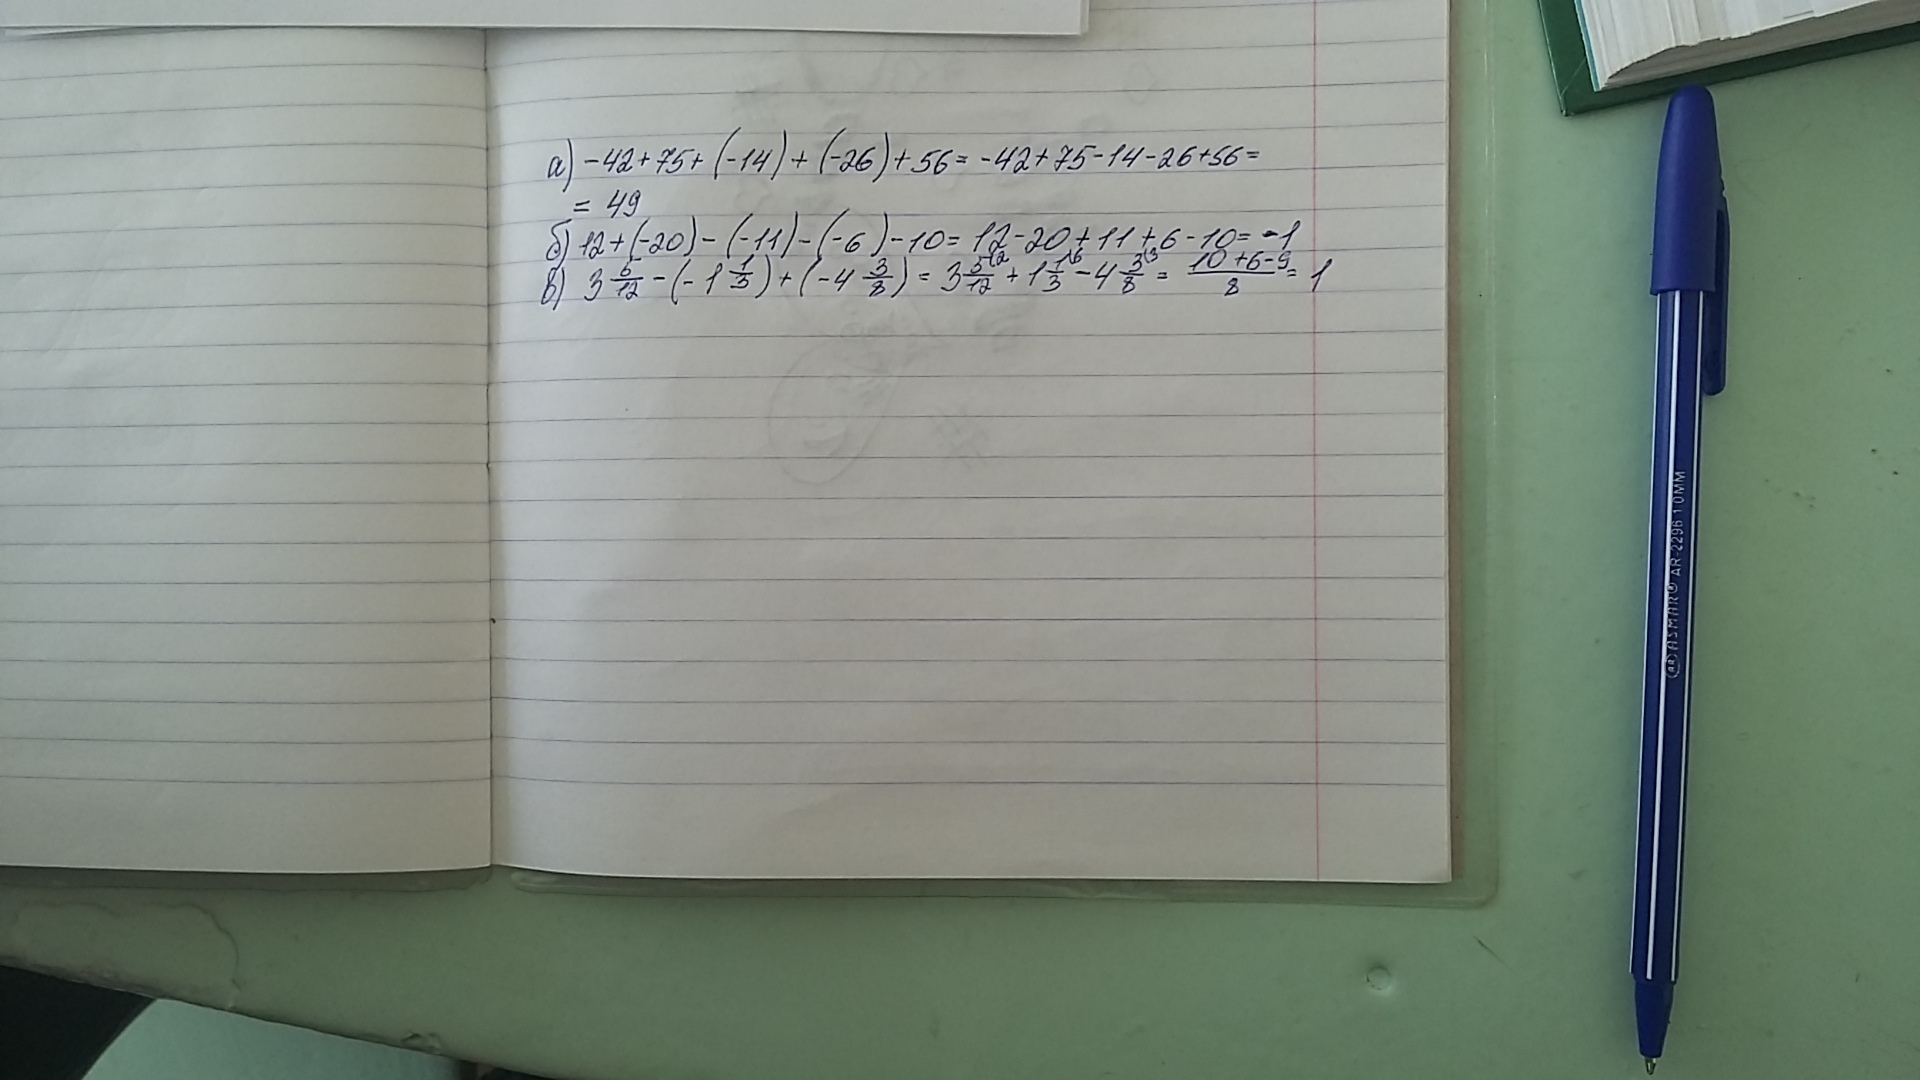 а) -42+75+(-14)+(-26)+56= -42+75-14-26+56=
= 49
б) 12+(-20)-(-11)-(-6)-10= 12-20+11+6-10= -1
в) 3 5/12 -(-1 1/3)+(-4 3/8) = 3 5/12 \2 + 1 1/3 \6 - 4 3/8 \3 = (10+6-9)/8 = 1
ASMAR® AR-2296 1.0MM